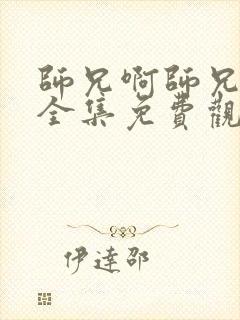 師兄啊師兄
全集免費觀
伊達邵